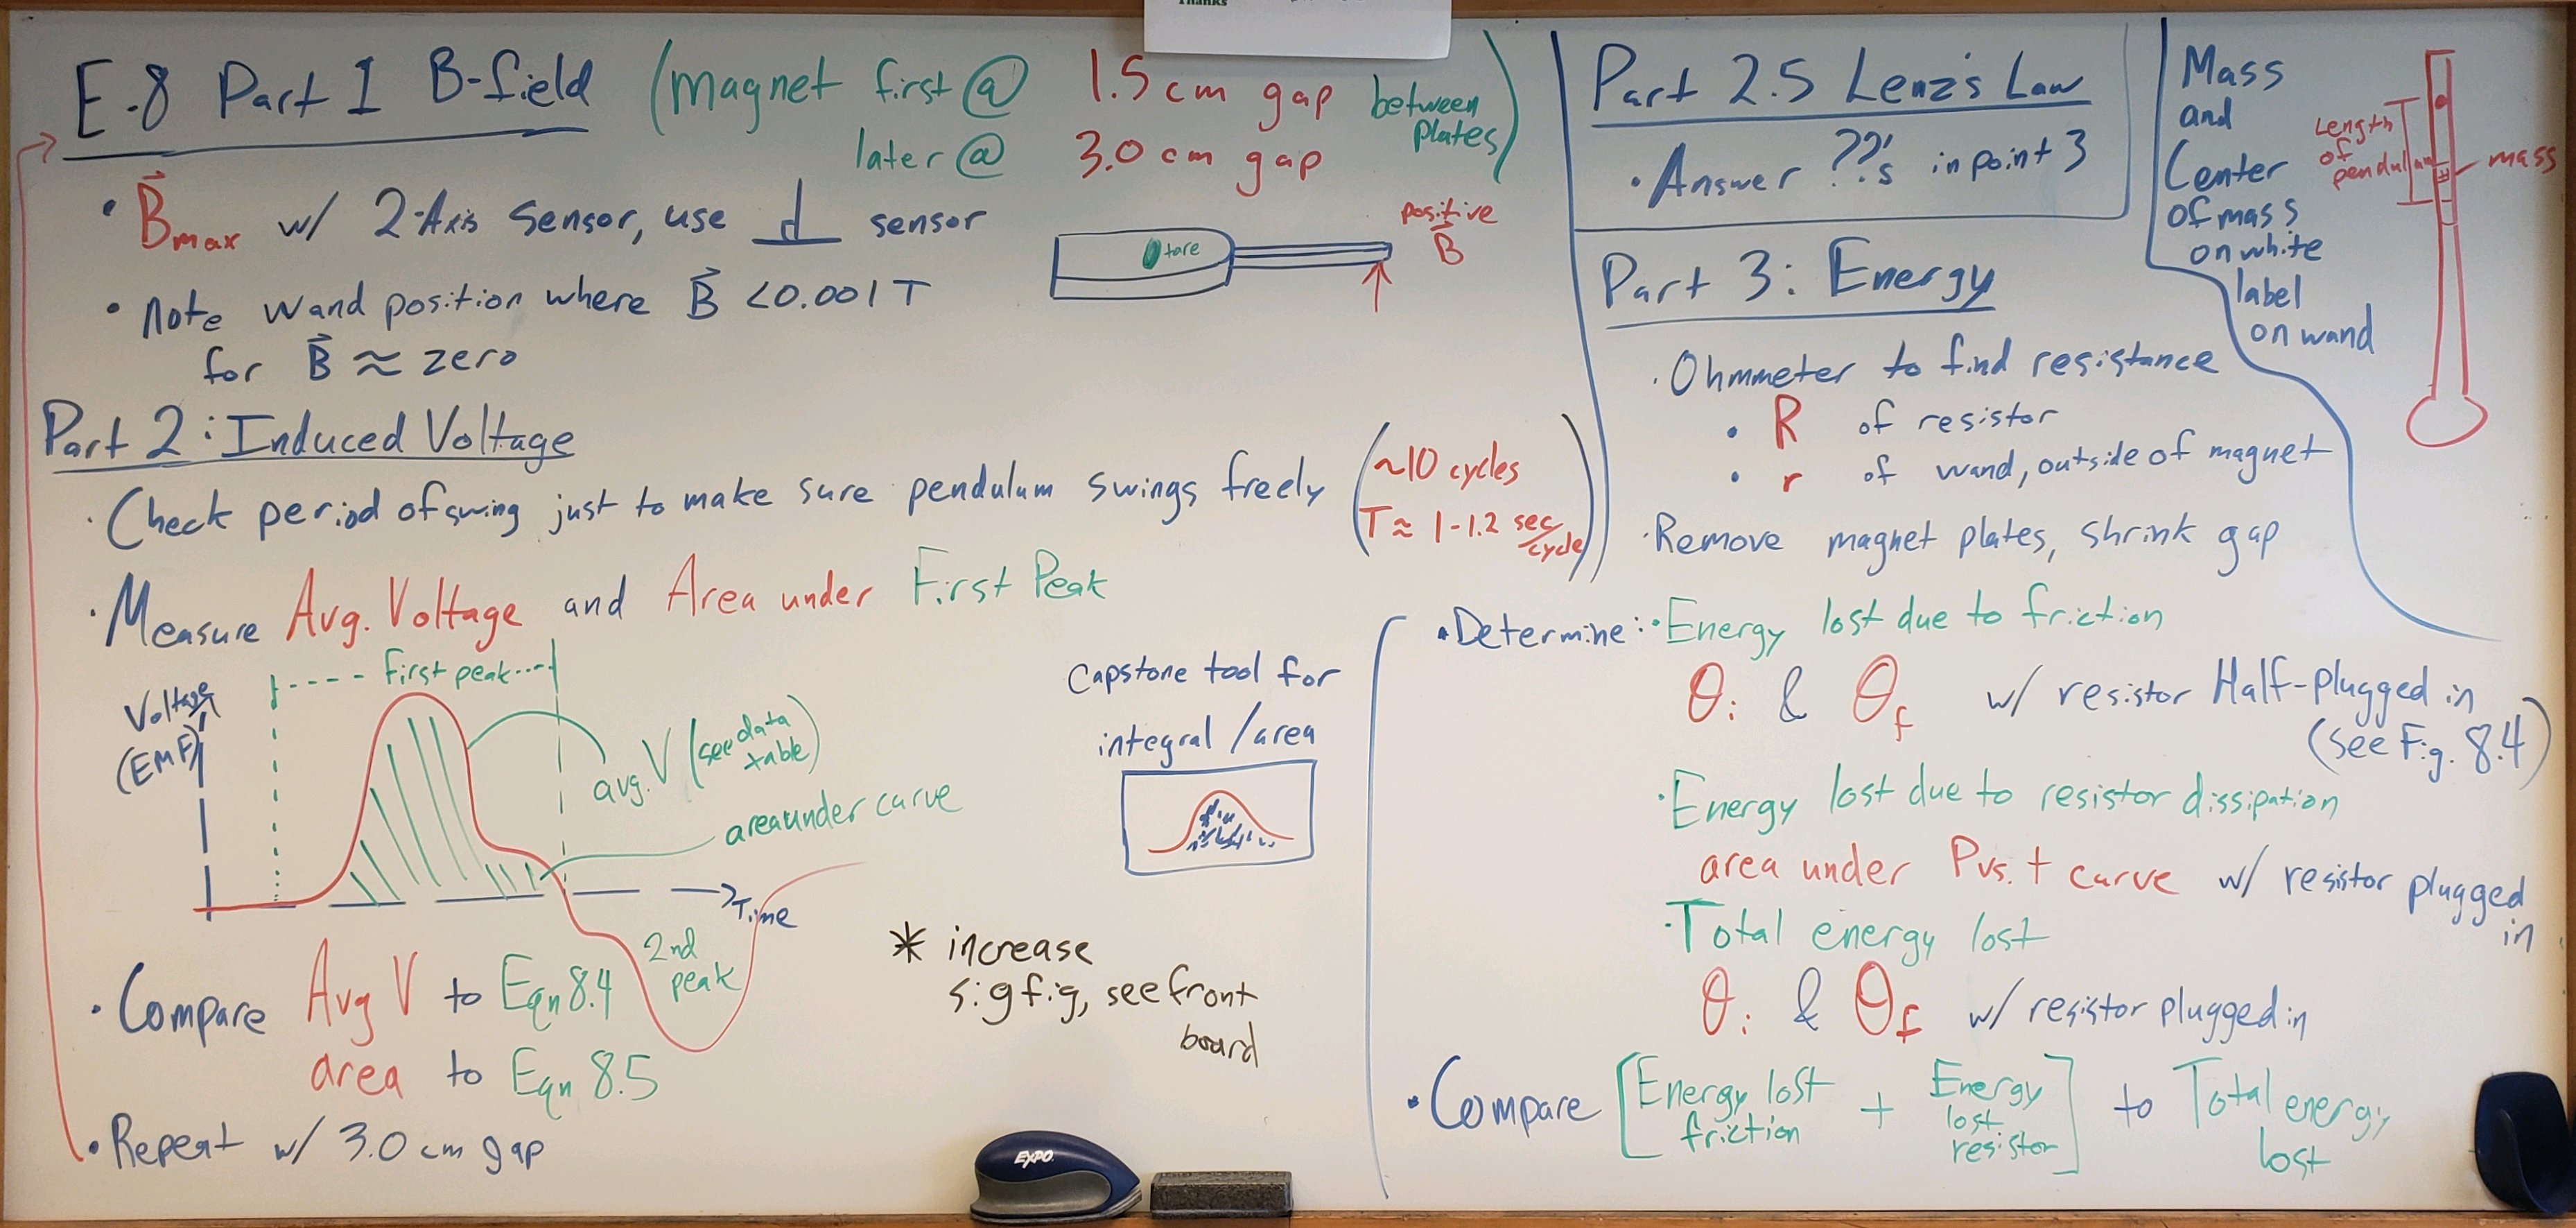 Thanks
E.8 Part 1 B-field (magnet first @ 1.5 cm gap between plates)
later @ 3.0 cm gap
• B⃗max w/ 2-Axis Sensor, use ⊥ sensor
tare
positive
B⃗
• Note wand position where B⃗ <0.001 T
for B⃗ ≈ zero
Part 2: Induced Voltage
• Check period of swing just to make sure pendulum swings freely (~10 cycles
T ≈ 1-1.2 sec/cycle)
• Measure Avg. Voltage and Area under First Peak
First peak
Voltage
(EMF)
avg. V (see data table)
area under curve
Time
2nd
peak
Capstone tool for
integral / area
* increase
sig fig, see front
board
• Compare Avg V to Eqn 8.4
area to Eqn 8.5
• Repeat w/ 3.0 cm gap
EXPO
Part 2.5 Lenz's Law
• Answer ??'s in point 3
Mass
and
Center
of mass
on white
label
on wand
Length
of
pendulum
mass
Part 3: Energy
• Ohmmeter to find resistance
• R of resistor
• r of wand, outside of magnet
• Remove magnet plates, shrink gap
• Determine: • Energy lost due to friction
θi & θf w/ resistor Half-plugged in
(see Fig. 8.4)
• Energy lost due to resistor dissipation
area under P vs. t curve w/ resistor plugged
in
• Total energy lost
θi & θf w/ resistor plugged in
• Compare [Energy lost friction + Energy lost resistor] to Total energy lost